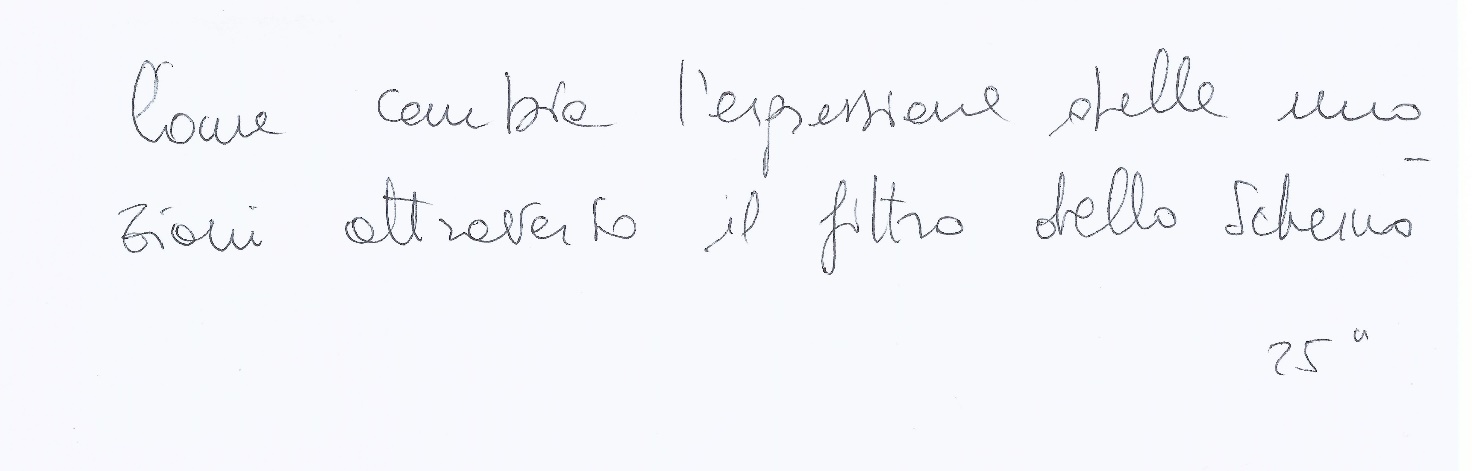 Come cambia l'espressione delle emo
-
zioni attraverso il filtro dello schermo
25"